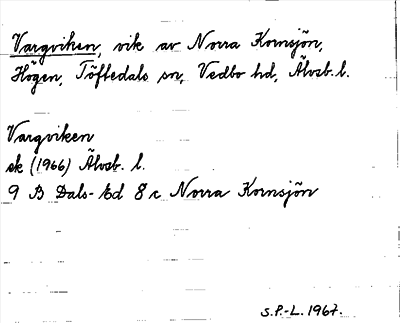 Vargviken, vik av Norra Kornsjön,
Högen, Töftedals sn, Vedbo hd, Älvsb. l.
Vargviken
ek (1966) Älvsb. l.
9 B Dals-Ed 8 c Norra Kornsjön
S.P.-L. 1967.